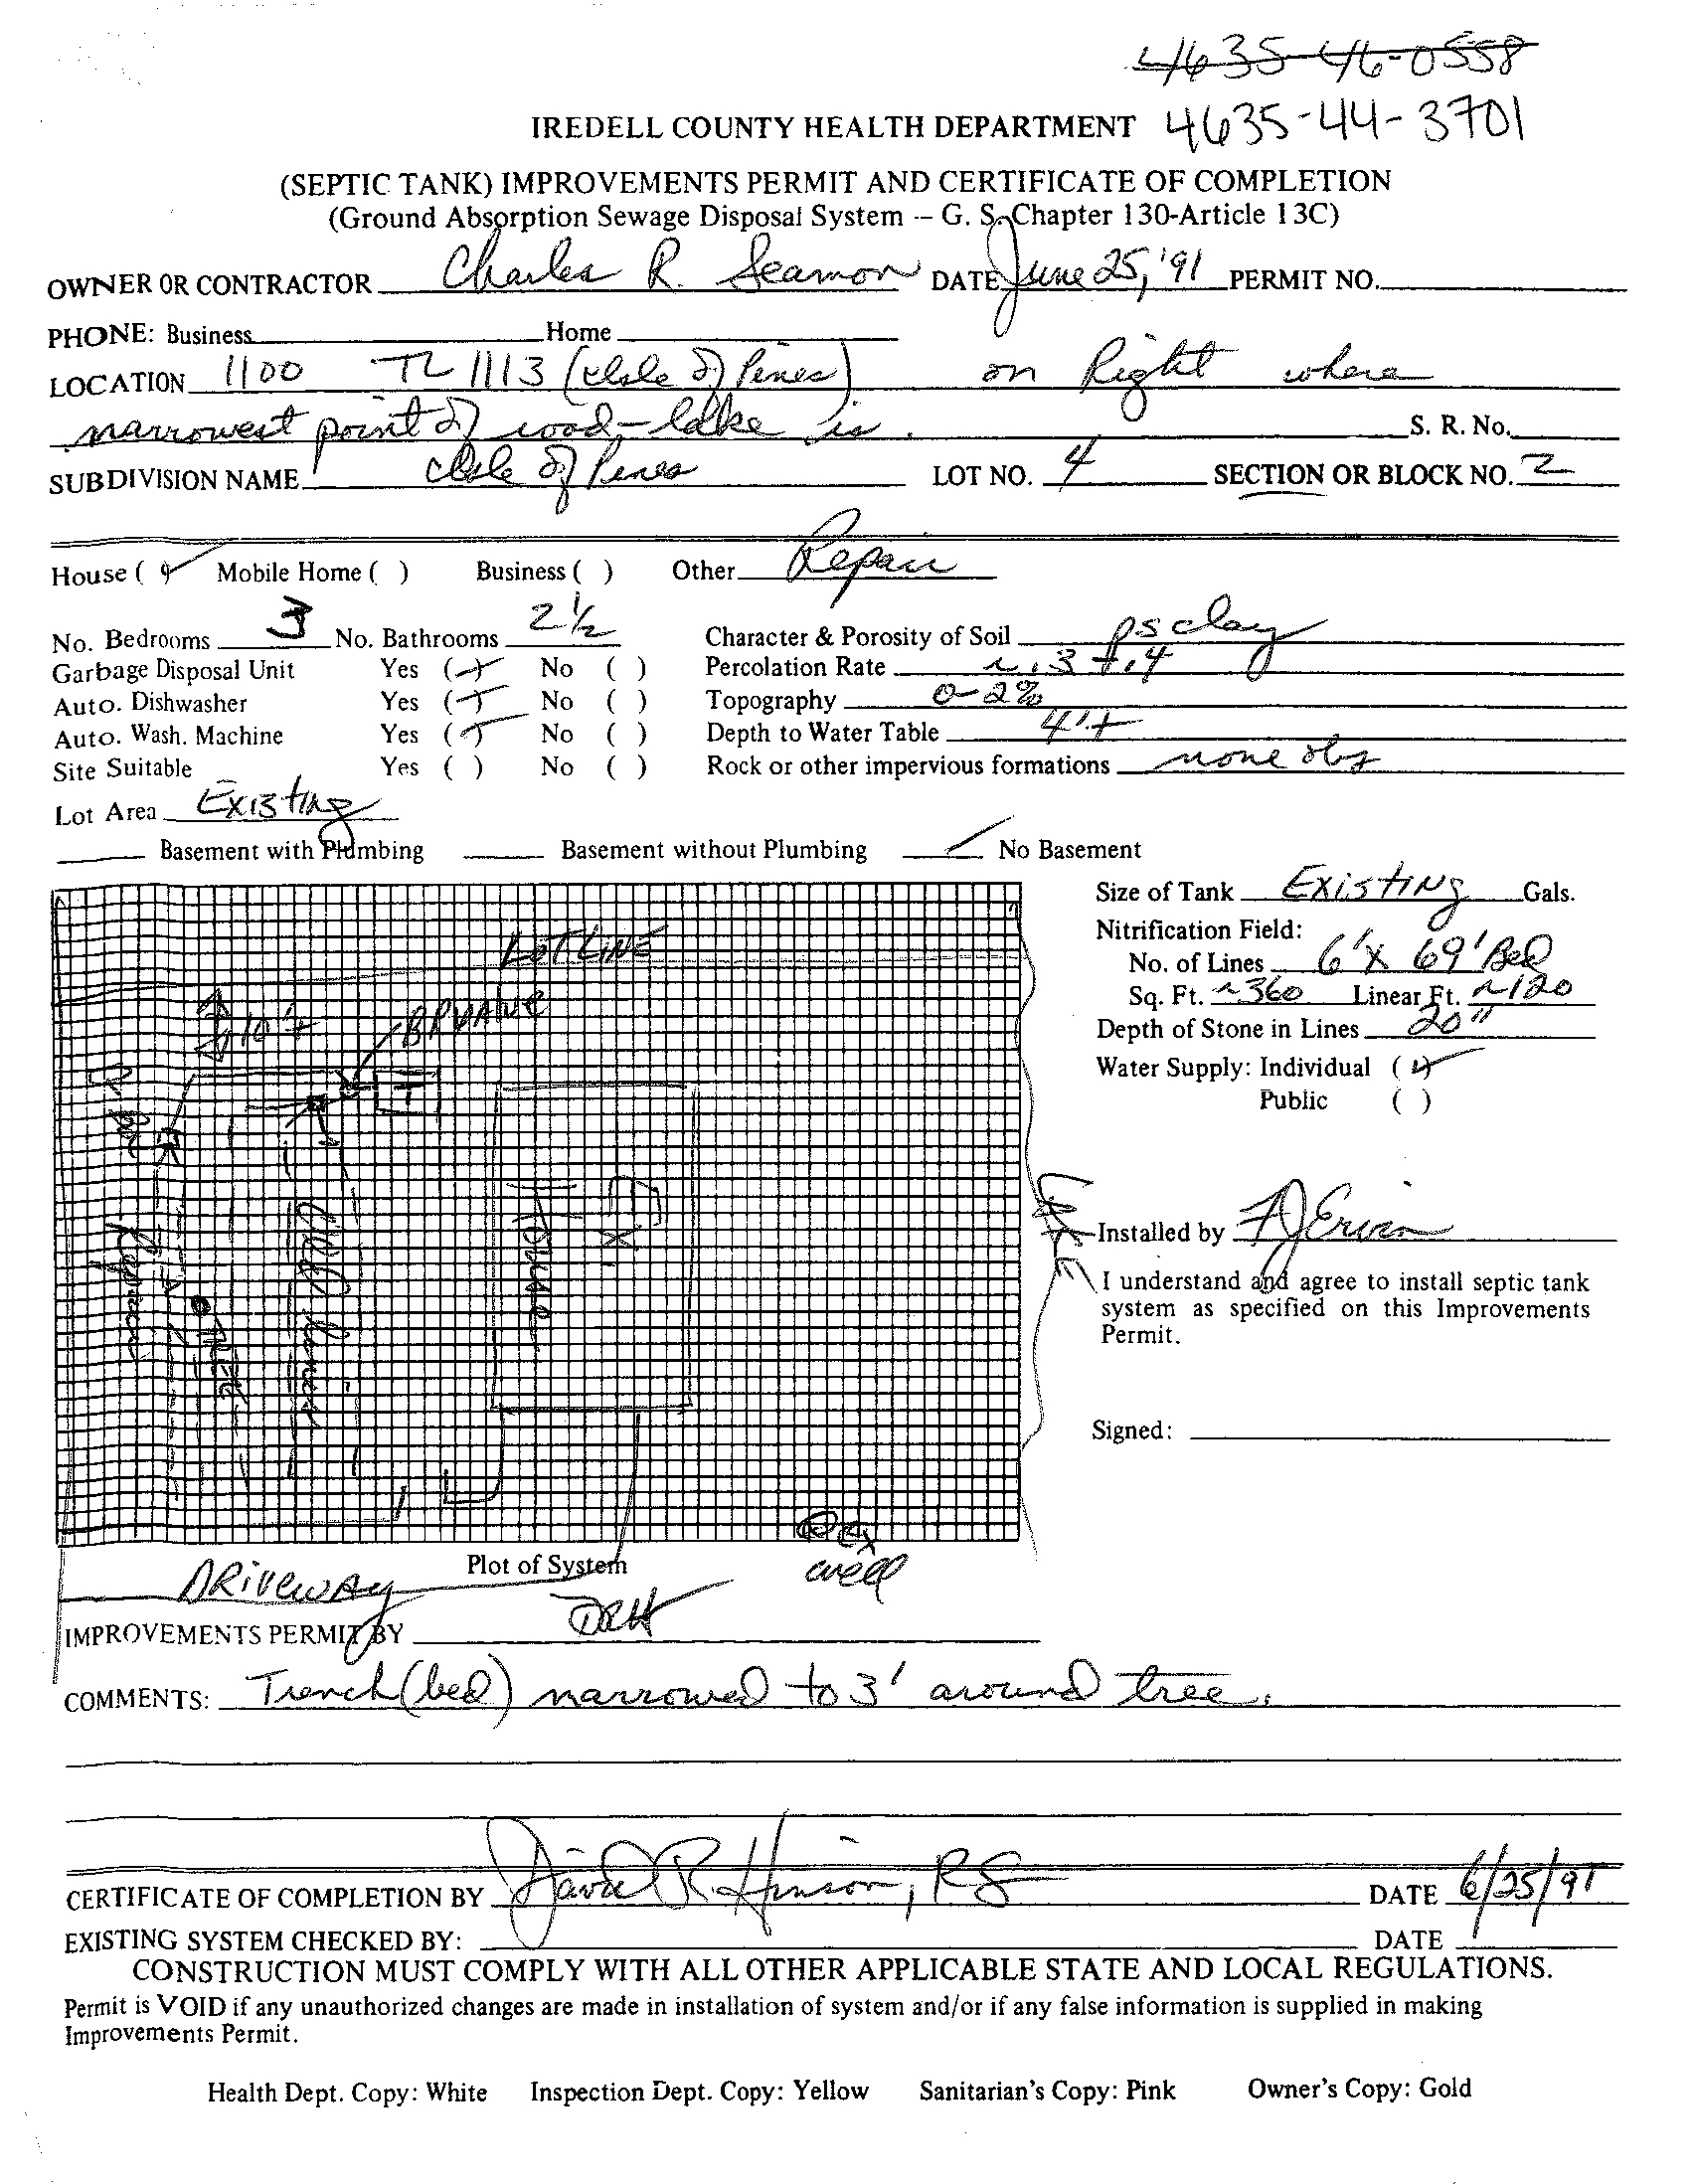 4635-46-0558
IREDELL COUNTY HEALTH DEPARTMENT 4635-44-3701
(SEPTIC TANK) IMPROVEMENTS PERMIT AND CERTIFICATE OF COMPLETION
(Ground Absorption Sewage Disposal System -- G. S. Chapter 130-Article 13C)
OWNER OR CONTRACTOR Charles R. Seamon DATE June 25, '91 PERMIT NO.
PHONE: Business Home
LOCATION 1100 TL 1113 (Isle of Pines) on Right where
narrowest point of road-lake is. S. R. No.
SUBDIVISION NAME Isle of Pines LOT NO. 4 SECTION OR BLOCK NO. 2
House ( ) Mobile Home ( ) Business ( ) Other Repair
No. Bedrooms 3 No. Bathrooms 2 1/2 Character & Porosity of Soil ps clay
Garbage Disposal Unit Yes ( ) No ( ) Percolation Rate ~ .3 + .4
Auto. Dishwasher Yes ( ) No ( ) Topography 0-2%
Auto. Wash. Machine Yes ( ) No ( ) Depth to Water Table 4'+
Site Suitable Yes ( ) No ( ) Rock or other impervious formations none obs
Lot Area Existing
Basement with Plumbing Basement without Plumbing No Basement
Size of Tank Existing Gals.
Nitrification Field:
No. of Lines 6' X 69' Bed
Sq. Ft. ~360 Linear Ft. ~120
Depth of Stone in Lines 20"
Water Supply: Individual ( )
Public ( )
LOT LINE
10'+
BP VALVE
T
Repair
TREE
OLD Lines
House
EX
Installed by
I understand and agree to install septic tank
system as specified on this Improvements
Permit.
Signed:
Ex
well
Plot of System
DRIVEWAY
IMPROVEMENTS PERMIT BY DRH
COMMENTS: Trench (bed) narrowed to 3' around tree.
CERTIFICATE OF COMPLETION BY David R. Hinson, RS DATE 6/25/91
EXISTING SYSTEM CHECKED BY: DATE
CONSTRUCTION MUST COMPLY WITH ALL OTHER APPLICABLE STATE AND LOCAL REGULATIONS.
Permit is VOID if any unauthorized changes are made in installation of system and/or if any false information is supplied in making
Improvements Permit.
Health Dept. Copy: White Inspection Dept. Copy: Yellow Sanitarian's Copy: Pink Owner's Copy: Gold